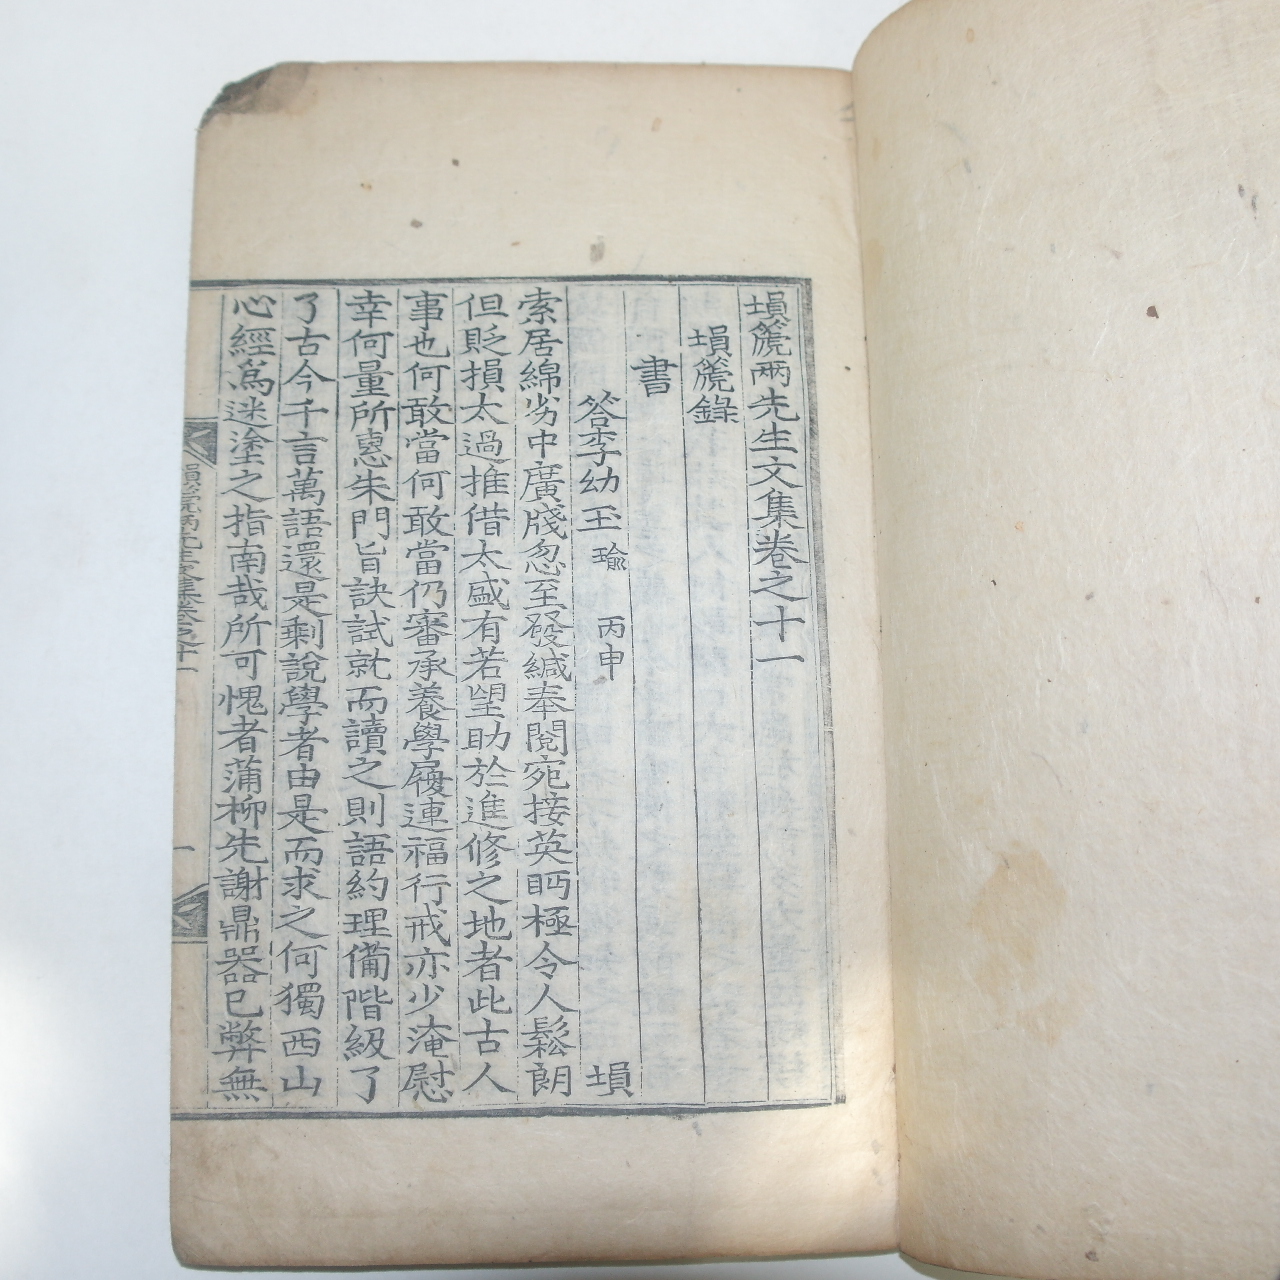 塤篪兩先生文集卷之十一
塤篪錄
書
答李幼玉 瑜 丙申 塤
索居綿劣中廣牋忽至發緘奉閱宛接英眄極令人鬆朗
但貶損太過推借太盛有若望助於進修之地者此古人
事也何敢當何敢當仍審承養學履連福行戒亦少淹慰
幸何量所惠朱門旨訣試就而讀之則語約理備階級了
了古今千言萬語還是剩說學者由是而求之何獨西山
心經爲迷塗之指南哉所可愧者蒲柳先謝鼎器已弊無
塤篪兩先生文集卷之十一 一